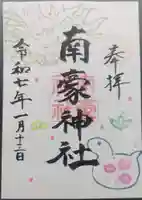 奉拝
南豪神社
令和七年一月十二日